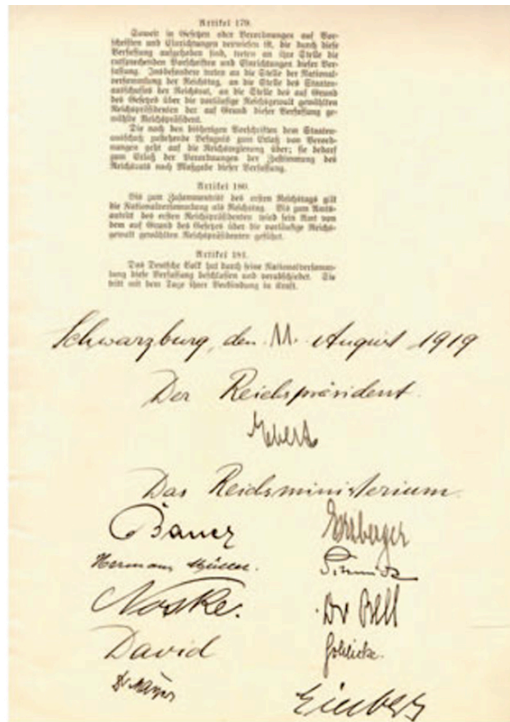 Artikel 179.
Soweit in Gesetzen oder Verordnungen auf Vor-
schriften und Einrichtungen verwiesen ist, die durch diese
Verfassung aufgehoben sind, treten an ihre Stelle die
entsprechenden Vorschriften und Einrichtungen dieser Ver-
fassung. Insbesondere treten an die Stelle der National-
versammlung der Reichstag, an die Stelle des Staaten-
ausschusses der Reichsrat, an die Stelle des auf Grund
des Gesetzes über die vorläufige Reichsgewalt gewählten
Reichspräsidenten der auf Grund dieser Verfassung ge-
wählte Reichspräsident.
Die nach den bisherigen Vorschriften dem Staaten-
ausschuß zustehende Befugnis zum Erlaß von Verord-
nungen geht auf die Reichsregierung über; sie bedarf
zum Erlaß der Verordnungen der Zustimmung des
Reichsrats nach Maßgabe dieser Verfassung.
Artikel 180.
Bis zum Zusammentritt des ersten Reichstags gilt
die Nationalversammlung als Reichstag. Bis zum Amts-
antritt des ersten Reichspräsidenten wird sein Amt von
dem auf Grund des Gesetzes über die vorläufige Reichs-
gewalt gewählten Reichspräsidenten geführt.
Artikel 181.
Das Deutsche Volk hat durch seine Nationalversamm-
lung diese Verfassung beschlossen und verabschiedet. Sie
tritt mit dem Tage ihrer Verkündung in Kraft.
Schwarzburg, den 11. August 1919
Der Reichspräsident.
Ebert
Das Reichsministerium.
Bauer Erzberger
Hermann Müller. Schmidt
Noske. Dr Bell
David
Dr Mayer